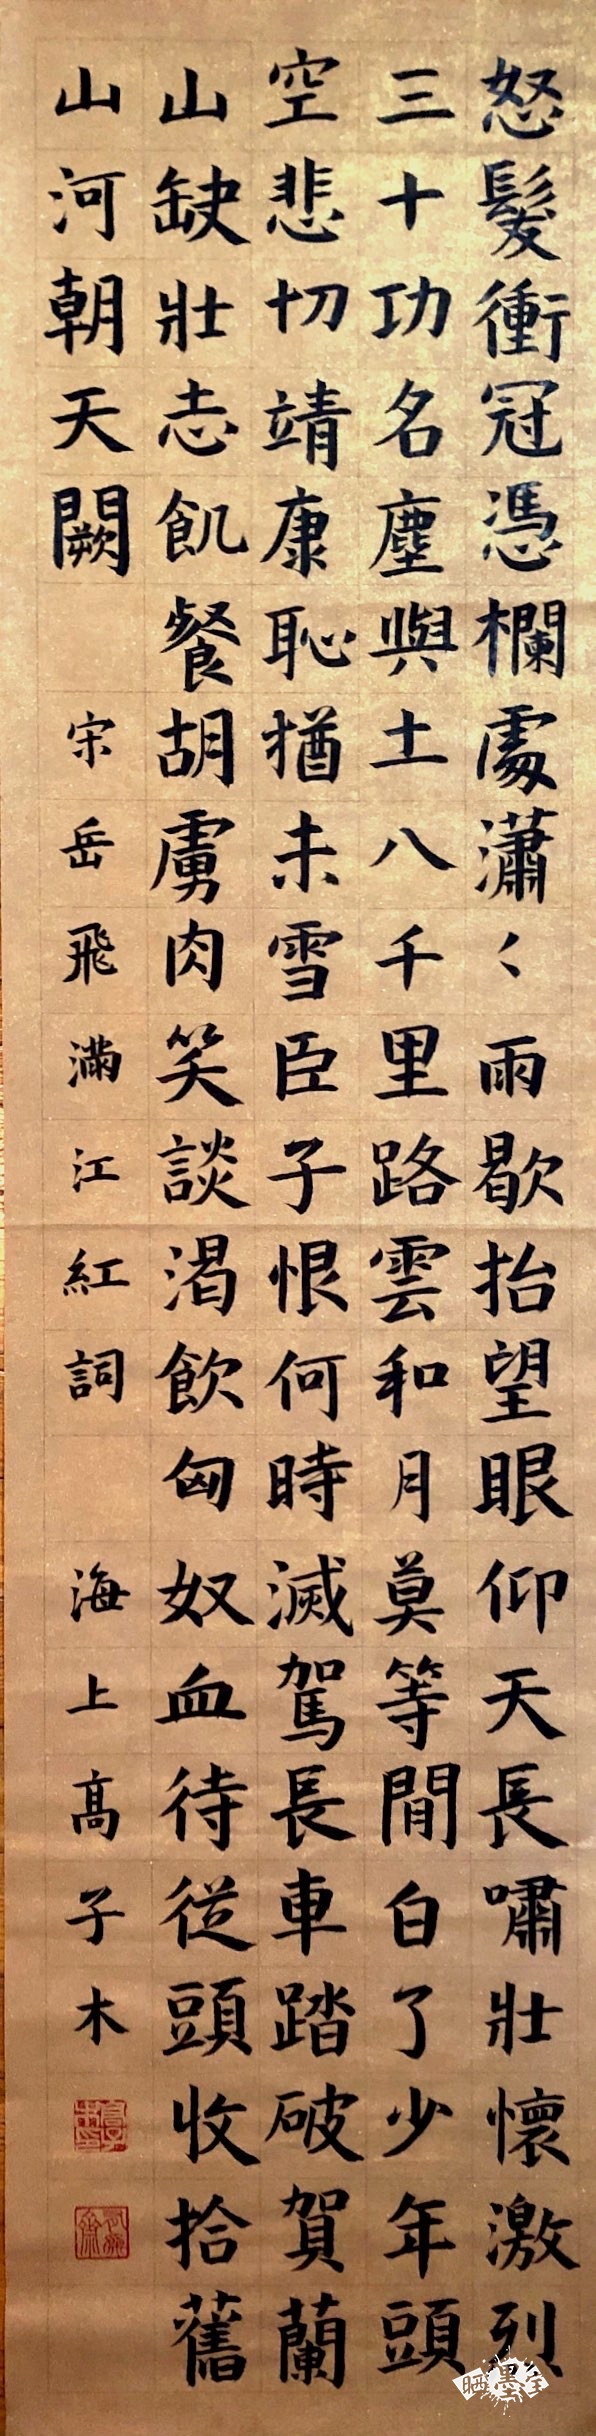 怒髮衝冠憑欄處瀟〻雨歇抬望眼仰天長嘯壯懷激烈
三十功名塵與土八千里路雲和月莫等閒白了少年頭
空悲切靖康恥猶未雪臣子恨何時滅駕長車踏破賀蘭
山缺壯志飢餐胡虜肉笑談渴飲匈奴血待從頭收拾舊
山河朝天闕
宋岳飛滿江紅詞
海上高子木
晒墨宝